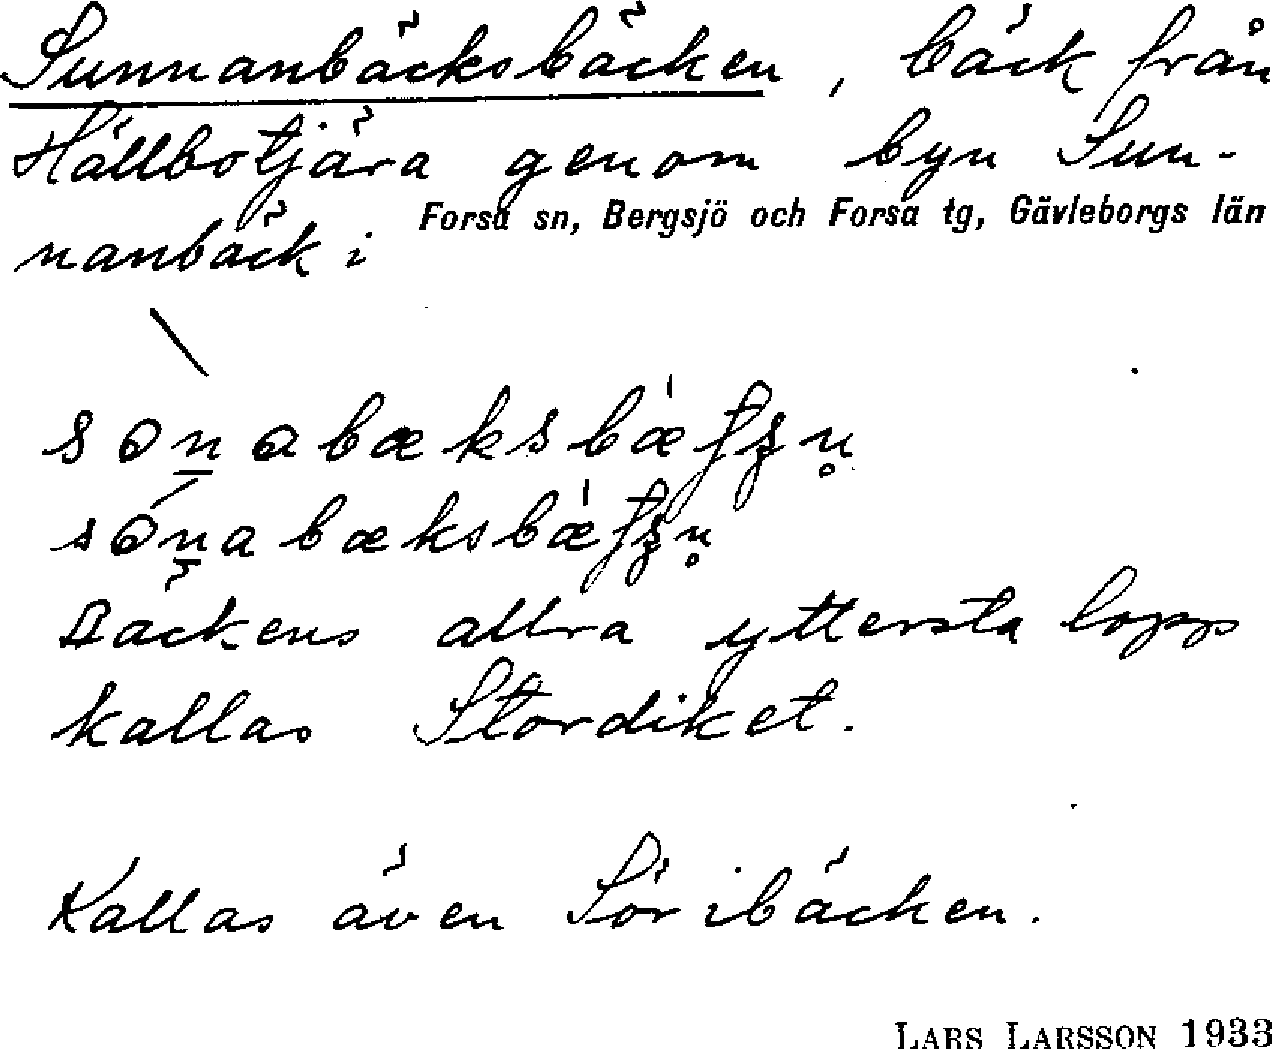 Sunnanbäcksbäcken, bäck från
Hållbotjära genom byn Sun-
nanbäck i Forsa sn, Bergsjö och Forsa tg, Gävleborgs län
Bäckens allra yttersta lopp
kallas Stordiket.
Kallas även Söribäcken.
LARS LARSSON 1933